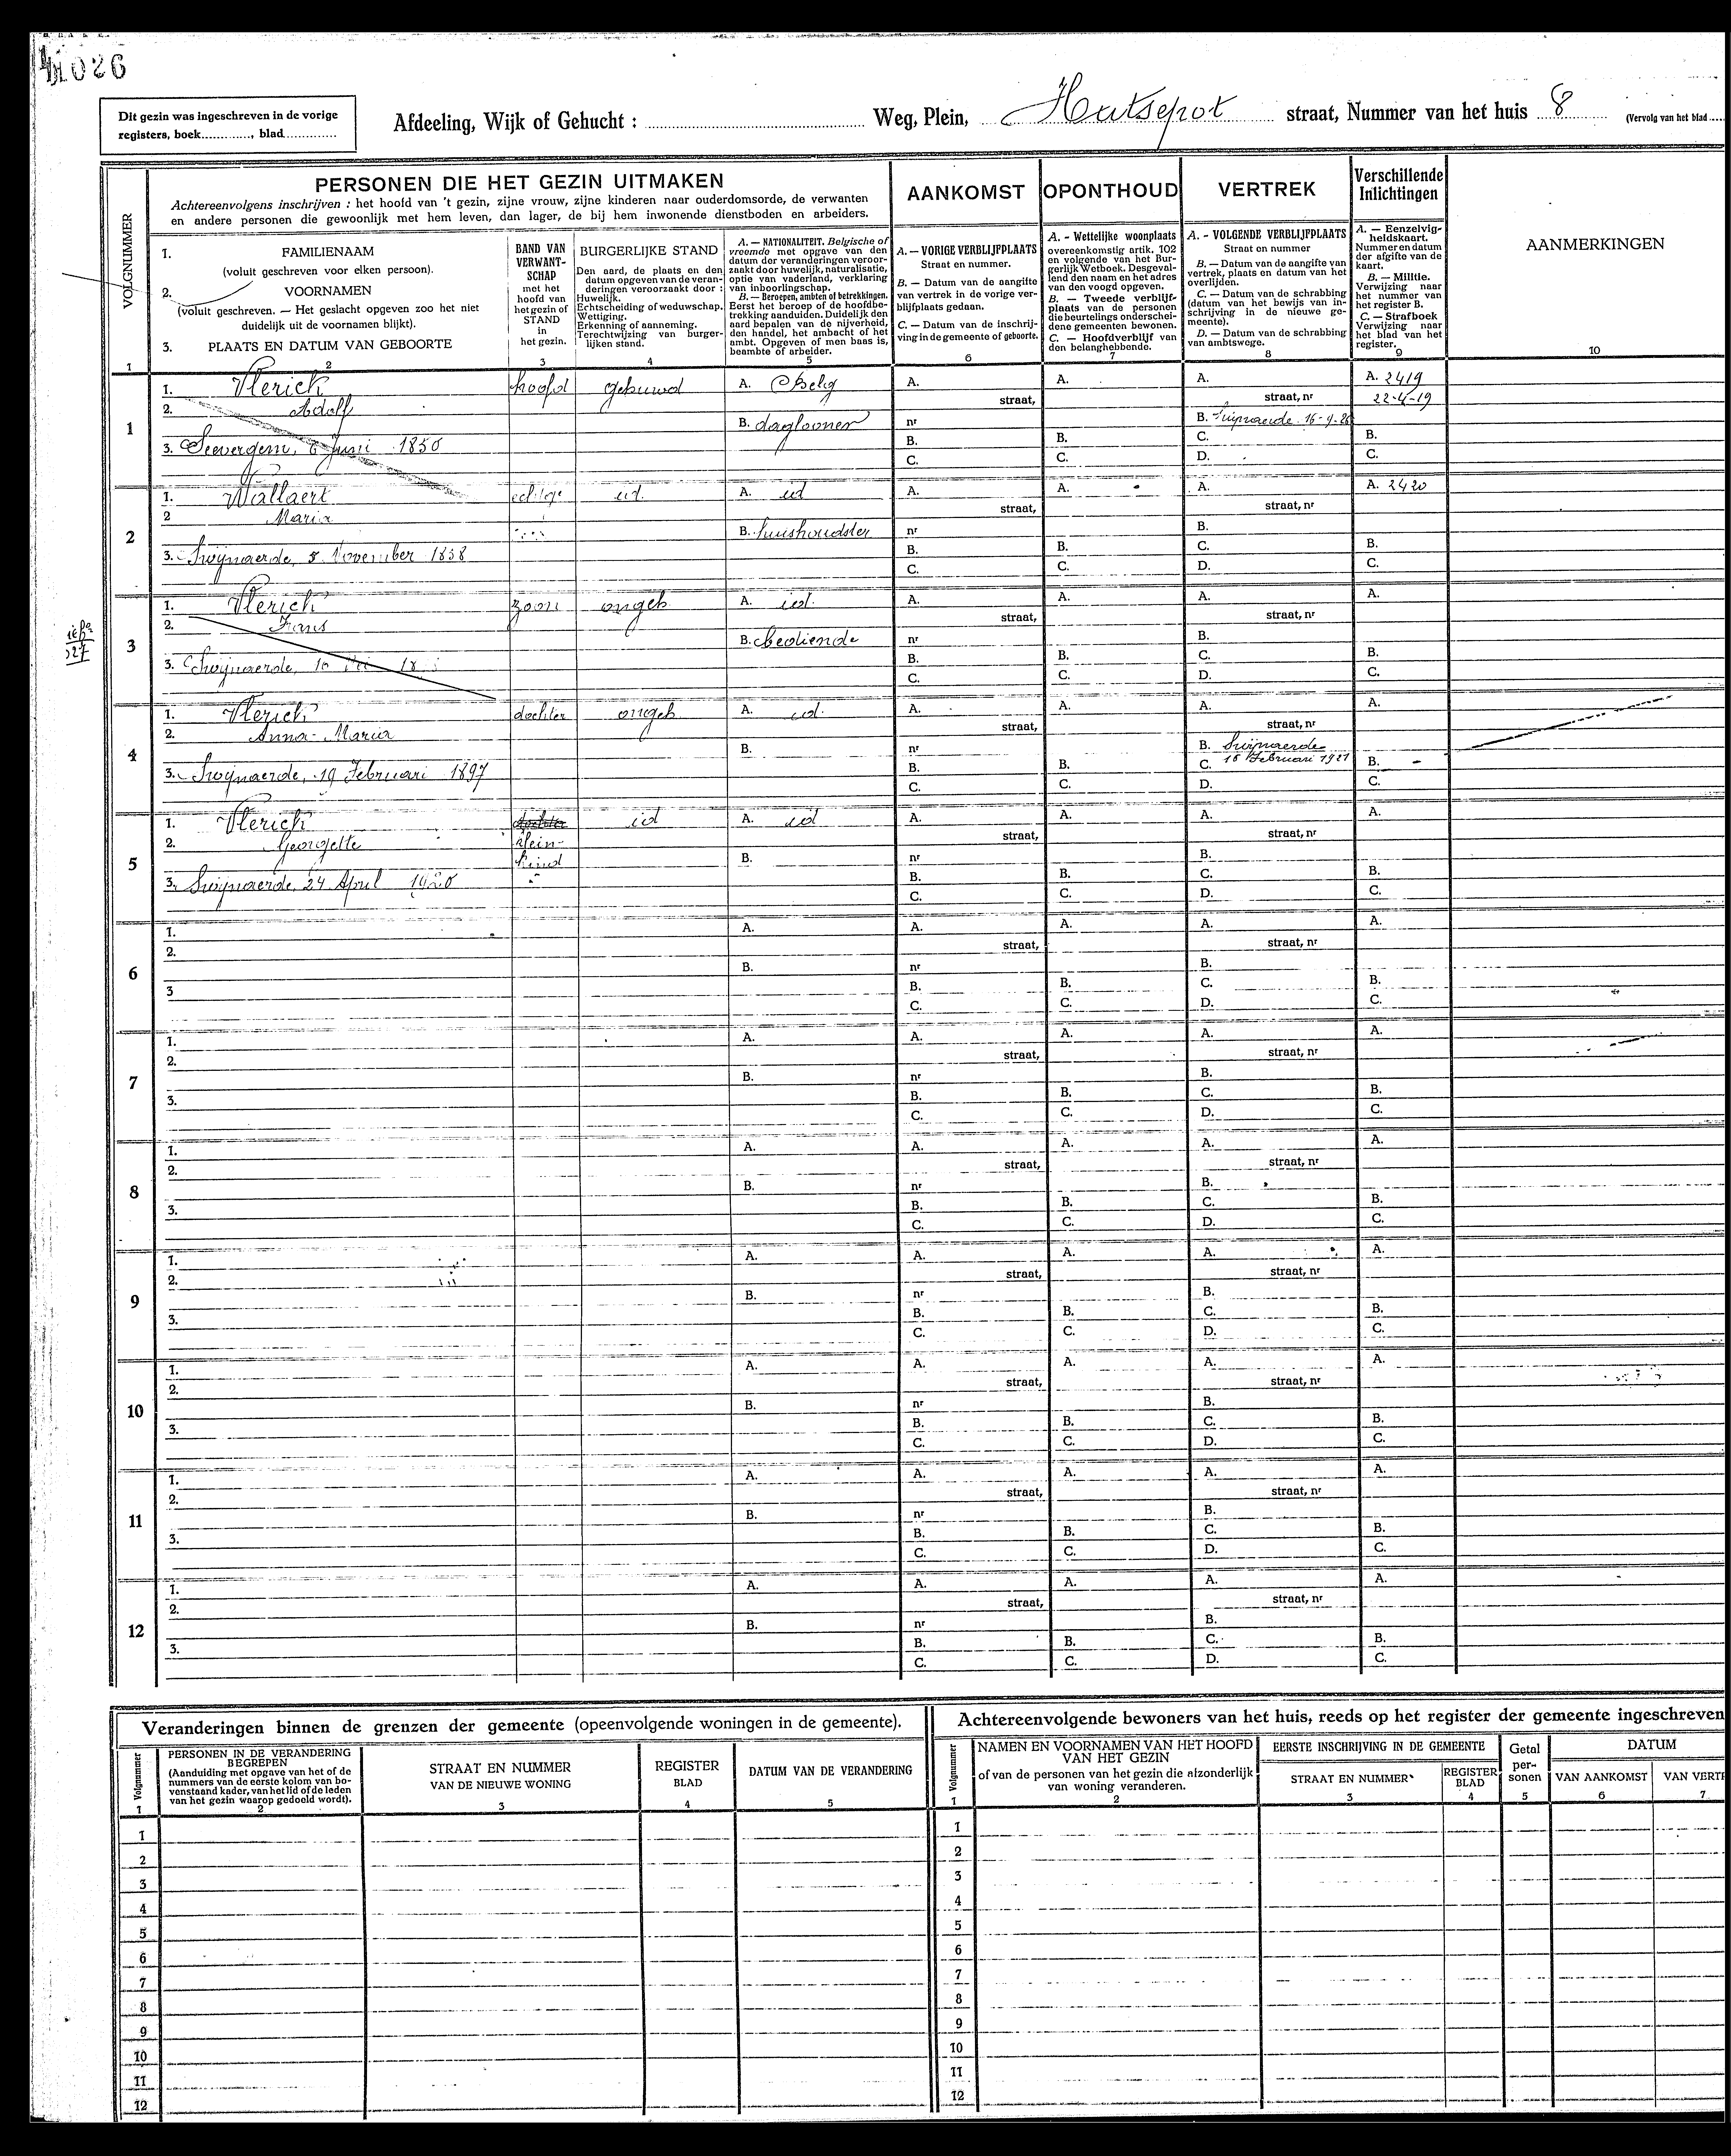 1026
Dit gezin was ingeschreven in de vorige
registers, boek............, blad.............
Afdeeling, Wijk of Gehucht : ............ Weg, Plein, Hutsepot straat, Nummer van het huis 8 (Vervolg van het blad .....
PERSONEN DIE HET GEZIN UITMAKEN
Achtereenvolgens inschrijven : het hoofd van 't gezin, zijne vrouw, zijne kinderen naar ouderdomsorde, de verwanten
en andere personen die gewoonlijk met hem leven, dan lager, de bij hem inwonende dienstboden en arbeiders.
AANKOMST
OPONTHOUD
VERTREK
Verschillende
Inlichtingen
AANMERKINGEN
VOLGNUMMER
1. FAMILIENAAM
(voluit geschreven voor elken persoon).
2. VOORNAMEN
(voluit geschreven. — Het geslacht opgeven zoo het niet
duidelijk uit de voornamen blijkt).
3. PLAATS EN DATUM VAN GEBOORTE
BAND VAN
VERWANT-
SCHAP
met het
hoofd van
het gezin of
STAND
in
het gezin.
BURGERLIJKE STAND
Den aard, de plaats en den
datum opgeven van de veran-
deringen veroorzaakt door :
Huwelijk.
Echtscheiding of weduwschap.
Wettiging.
Erkenning of aanneming.
Terechtwijzing van burger-
lijken stand.
A. — NATIONALITEIT. Belgische of
vreemde met opgave van den
datum der veranderingen veroor-
zaakt door huwelijk, naturalisatie,
optie van vaderland, verklaring
van inboorlingschap.
B. — Beroepen, ambten of betrekkingen.
Eerst het beroep of de hoofdbe-
trekking aanduiden. Duidelijk den
aard bepalen van de nijverheid,
den handel, het ambacht of het
ambt. Opgeven of men baas is,
beambte of arbeider.
A. — VORIGE VERBLIJFPLAATS
Straat en nummer.
B. — Datum van de aangifte
van vertrek in de vorige ver-
blijfplaats gedaan.
C. — Datum van de inschrij-
ving in de gemeente of geboorte.
A. - Wettelijke woonplaats
overeenkomstig artik. 102
en volgende van het Bur-
gerlijk Wetboek. Desgeval-
lend den naam en het adres
van den voogd opgeven.
B. — Tweede verblijf-
plaats van de personen
die beurtelings onderschei-
dene gemeenten bewonen.
C. — Hoofdverblijf van
den belanghebbende.
A. - VOLGENDE VERBLIJFPLAATS
Straat en nummer
B. — Datum van de aangifte van
vertrek, plaats en datum van het
overlijden.
C. — Datum van de schrabbing
(datum van het bewijs van in-
schrijving in de nieuwe ge-
meente).
D. — Datum van de schrabbing
van ambtswege.
A. — Eenzelvig-
heidskaart.
Nummer en datum
der afgifte van de
kaart.
B. — Militie.
Verwijzing naar
het nummer van
het register B.
C. — Strafboek
Verwijzing naar
het blad van het
register.
1 2 3 4 5 6 7 8 9 10
1
1. Vlerick hoofd gehuwd A. Belg A. A. A. A. 2419
2. Adolf straat, straat, nr 22-4-19
B. daglooner nr B. Swijnaerde 16-9-26
3. Seevergem, 6 Juni 1850 B. B. C. B.
C. C. D. C.
2
1. Wallaert echtge id. A. id A. A. A. A. 2420
2 Maria straat, straat, nr
B. huishoudster nr B.
3. Swijnaerde, 5 November 1858 B. B. C. B.
C. C. D. C.
3
1. Vlerick zoon ongeh A. id. A. A. A. A.
2. Frans straat, straat, nr
B. bediende nr B.
3. Swijnaerde, 10 18 B. B. C. B.
C. C. D. C.
4
1. Vlerick dochter ongeh A. id. A. A. A. A.
2. Anna-Maria straat, straat, nr
B. nr B. Swijnaerde
3. Swijnaerde, 19 Februari 1897 B. B. C. 18 Februari 1921 B.
C. C. D. C.
5
1. Vlerick dochter id A. id A. A. A. A.
2. Georgette klein- straat, straat, nr
kind B. nr B.
3. Swijnaerde, 24 April 1920 B. B. C. B.
C. C. D. C.
6
1. A. A. A. A. A.
2. straat, straat, nr
B. nr B.
3 B. B. C. B.
C. C. D. C.
7
1. A. A. A. A. A.
2. straat, straat, nr
B. nr B.
3. B. B. C. B.
C. C. D. C.
8
1. A. A. A. A. A.
2. straat, straat, nr
B. nr B.
3. B. B. C. B.
C. C. D. C.
9
1. A. A. A. A. A.
2. straat, straat, nr
B. nr B.
3. B. B. C. B.
C. C. D. C.
10
1. A. A. A. A. A.
2. straat, straat, nr
B. nr B.
3. B. B. C. B.
C. C. D. C.
11
1. A. A. A. A. A.
2. straat, straat, nr
B. nr B.
3. B. B. C. B.
C. C. D. C.
12
1. A. A. A. A. A.
2. straat, straat, nr
B. nr B.
3. B. B. C. B.
C. C. D. C.
Veranderingen binnen de grenzen der gemeente (opeenvolgende woningen in de gemeente).
Volgnummer
PERSONEN IN DE VERANDERING
BEGREPEN
(Aanduiding met opgave van het of de
nummers van de eerste kolom van bo-
venstaand kader, van het lid of de leden
van het gezin waarop gedoeld wordt).
STRAAT EN NUMMER
VAN DE NIEUWE WONING
REGISTER
BLAD
DATUM VAN DE VERANDERING
1 2 3 4 5
1
2
3
4
5
6
7
8
9
10
11
12
Achtereenvolgende bewoners van het huis, reeds op het register der gemeente ingeschreven
Volgnummer
NAMEN EN VOORNAMEN VAN HET HOOFD
VAN HET GEZIN
of van de personen van het gezin die afzonderlijk
van woning veranderen.
EERSTE INSCHRIJVING IN DE GEMEENTE
STRAAT EN NUMMER
REGISTER
BLAD
Getal
per-
sonen
DATUM
VAN AANKOMST
VAN VERT
1 2 3 4 5 6 7
1
2
3
4
5
6
7
8
9
10
11
12